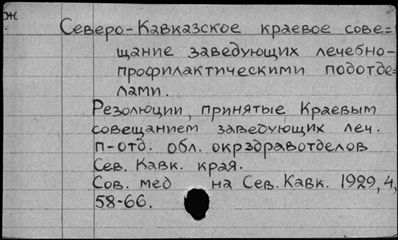 ж
Северо-Кавказское краевое сове=
щание заведующих лечебно-
профилактическими подотде-
лами.
Резолюции, принятые Краевым
совещанием заведующих леч.
п-отд. обл. окрздравотделов
Сев. Кавк. края.
Сов. мед на Сев. Кавк. 1929, 4,
58-66.